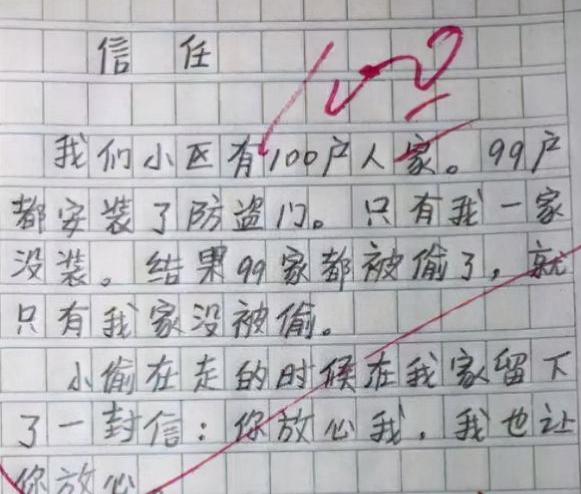 信任
我们小区有100户人家。99户
都安装了防盗门。只有我一家
没装。结果99家都被偷了，就
只有我家没被偷。
小偷在走的时候在我家留下
了一封信：你放心我，我也让
你放心